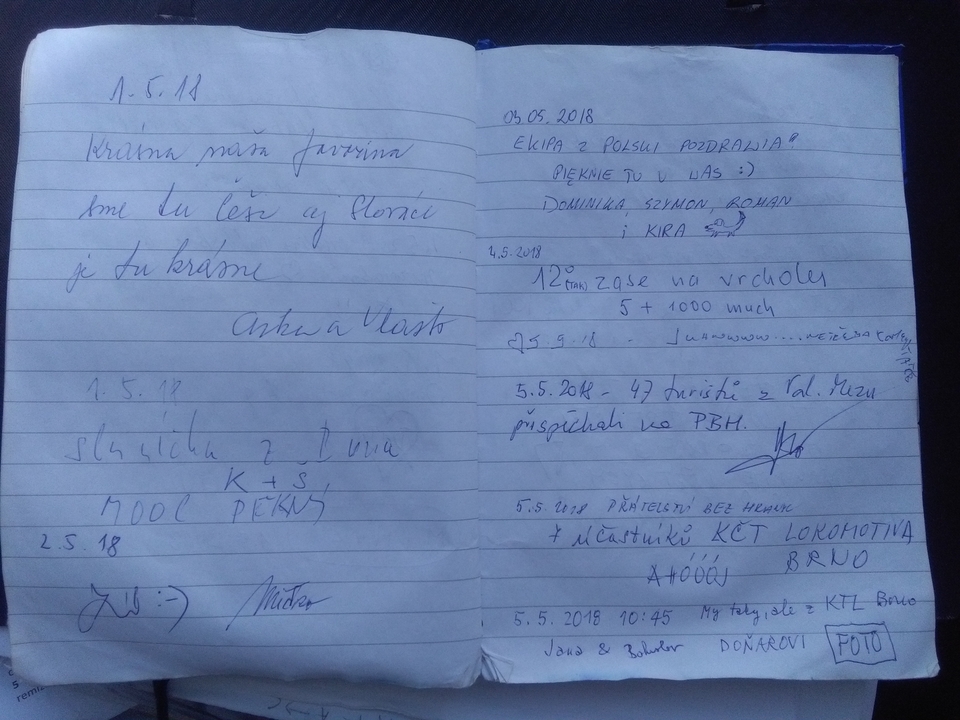 1.5.18
Krásna naša Javorina
sme tu Češi aj Slováci
je tu krásne
a Vlasto
1.5.18
z Brna
K + Š
MOOC PĚKNÝ
2.5.18
:-)
03.05.2018
EKIPA Z POLSKI POZDRAWIA!
PIĘKNIE TU U WAS :)
DOMINIKA, SZYMON, ROMAN
i KIRA
4.5.2018
12° (TAK) zase na vrcholu
5 + 1000 much
5.5.2018 - 47 turistů z Val. Mezu
přispíchali na PBH.
5.5.2018 PŘÁTELSTVÍ BEZ HRANIC
7 účastníků KČT LOKOMOTIVA
BRNO
AHÓÓÓJ
5.5.2018 10:45 My taky, ale z KTL Brno
Jana & Bohuslav DOŇAROVI FOTO
remiz